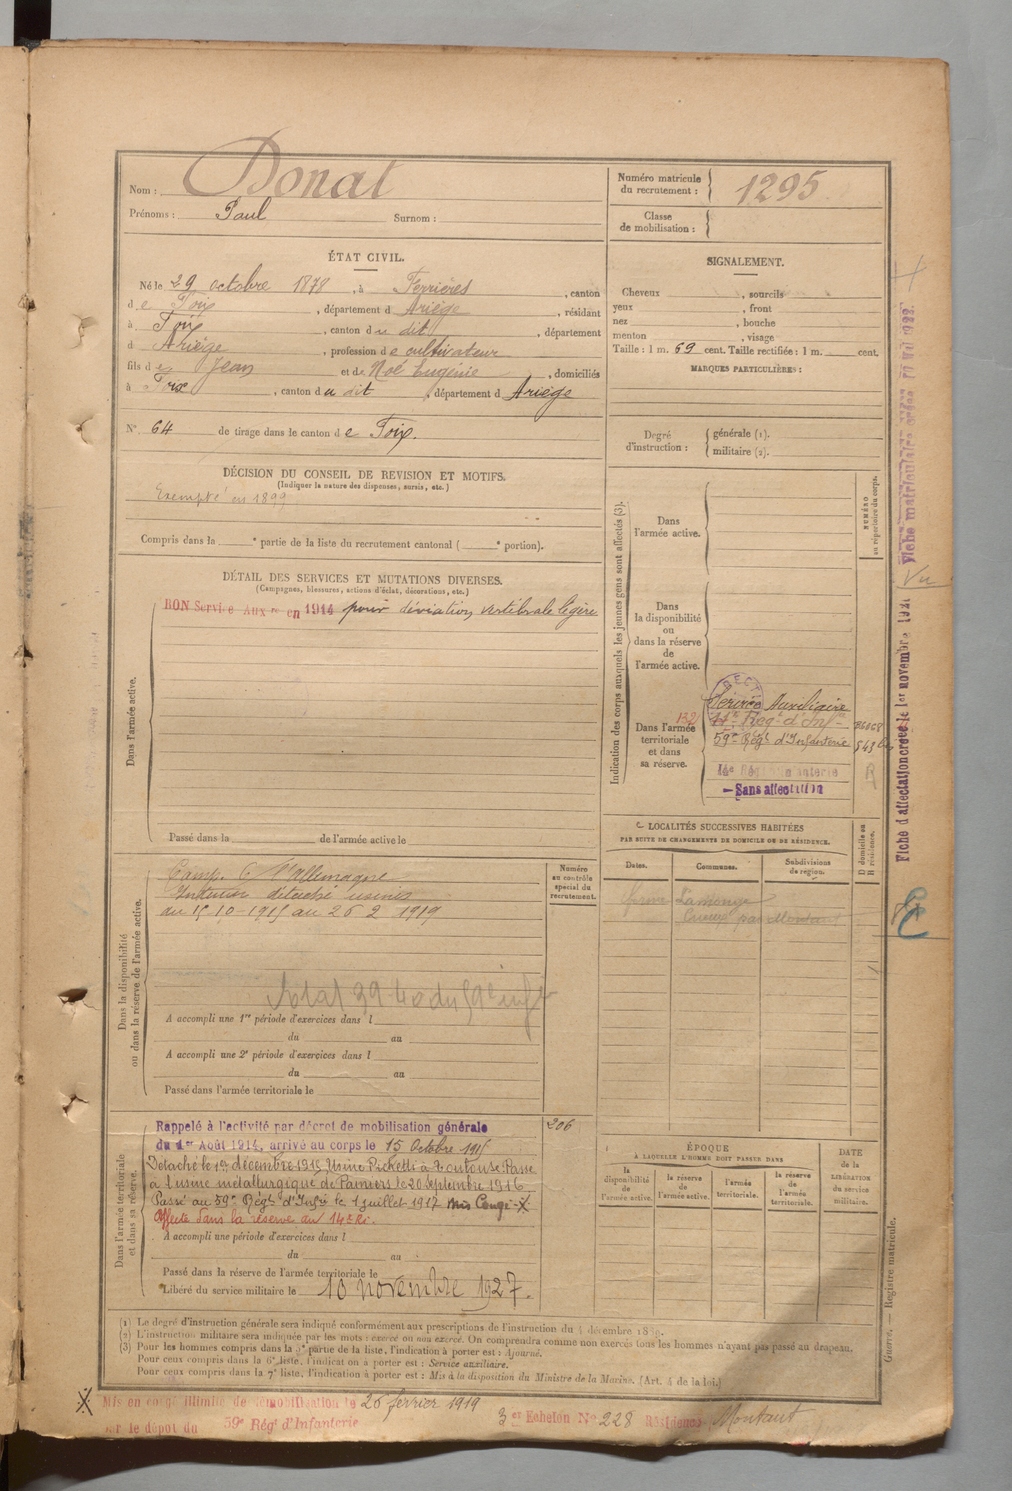 Nom : Donat
Prénoms : Paul Surnom :
Numéro matricule du recrutement : 1295
Classe de mobilisation :
ÉTAT CIVIL.
Né le 29 octobre 1878, à Ferrières, canton
de Foix, département d Ariège, résidant
à Foix, canton du dit, département
d Ariège, profession de cultivateur
fils de Jean et de Noé Eugénie, domiciliés
à Foix, canton du dit, département d Ariège
N° 64 de tirage dans le canton de Foix.
SIGNALEMENT.
Cheveux , sourcils
yeux , front
nez , bouche
menton , visage
Taille : 1 m. 69 cent. Taille rectifiée : 1 m. cent.
MARQUES PARTICULIÈRES :
Degré d'instruction : générale (1).
militaire (2).
DÉCISION DU CONSEIL DE REVISION ET MOTIFS.
(Indiquer la nature des dispenses, sursis, etc.)
Exempté en 1899
Compris dans la e partie de la liste du recrutement cantonal ( e portion).
DÉTAIL DES SERVICES ET MUTATIONS DIVERSES.
(Campagnes, blessures, actions d'éclat, décorations, etc.)
BON Service Auxre en 1914 pour déviation vertébrale légère
Dans l'armée active.
Passé dans la de l'armée active le
Indication des corps auxquels les jeunes gens sont affectés (3).
NUMÉRO au répertoire du corps.
Dans l'armée active.
Dans la disponibilité ou dans la réserve de l'armée active.
Dans l'armée territoriale et dans sa réserve.
Service Auxiliaire
132
Régt d'Infie
59e Régt d'Infanterie
Sans affectation
LOCALITÉS SUCCESSIVES HABITÉES
PAR SUITE DE CHANGEMENTS DE DOMICILE OU DE RÉSIDENCE.
Dates. Communes. Subdivisions de région. D domicile ou R résidence.
par Montaut
Dans la disponibilité ou dans la réserve de l'armée active.
Numéro au contrôle spécial du recrutement.
Camp. C. l'Allemagne
Intérieur détaché usines
du 15-10-1915 au 26 2 1919
A accompli une 1re période d'exercices dans l
du au
A accompli une 2e période d'exercices dans l
du au
Passé dans l'armée territoriale le
Dans l'armée territoriale et dans sa réserve.
Rappelé à l'activité par décret de mobilisation générale
du 1er Août 1914, arrivé au corps le 15 Octobre 1915
206
Détaché le 1er décembre 1915 Usine Picketti à Toulouse. Passé
à l'usine métallurgique de Pamiers le 26 septembre 1916
Passé au 59e Régt d'Infie le 1 juillet 1917 Mis Congé X
Affecté dans la réserve au 14e RI.
A accompli une période d'exercices dans l
du au
Passé dans la réserve de l'armée territoriale le
Libéré du service militaire le 10 novembre 1927.
ÉPOQUE
A LAQUELLE L'HOMME DOIT PASSER DANS
la disponibilité de l'armée active. la réserve de l'armée active. l'armée territoriale. la réserve de l'armée territoriale.
DATE de la LIBÉRATION du service militaire.
(1) Le degré d'instruction générale sera indiqué conformément aux prescriptions de l'instruction du 4 décembre 1889.
(2) L'instruction militaire sera indiquée par les mots : exercé ou non exercé. On comprendra comme non exercés tous les hommes n'ayant pas passé au drapeau.
(3) Pour les hommes compris dans la 5e partie de la liste, l'indication à porter est : Ajourné.
Pour ceux compris dans la 6e liste, l'indication à porter est : Service auxiliaire.
Pour ceux compris dans la 7e liste, l'indication à porter est : Mis à la disposition du Ministre de la Marine. (Art. 4 de la loi.)
X Mis en congé illimité de démobilisation le 26 février 1919
par le dépôt du 59e Régt d'Infanterie
3er Echelon No 228 Résidence Montaut
Guerre. — Registre matricule.
Fiche d'affectation créée le 1er novembre 1921
Vu
Fiche matriculaire créée